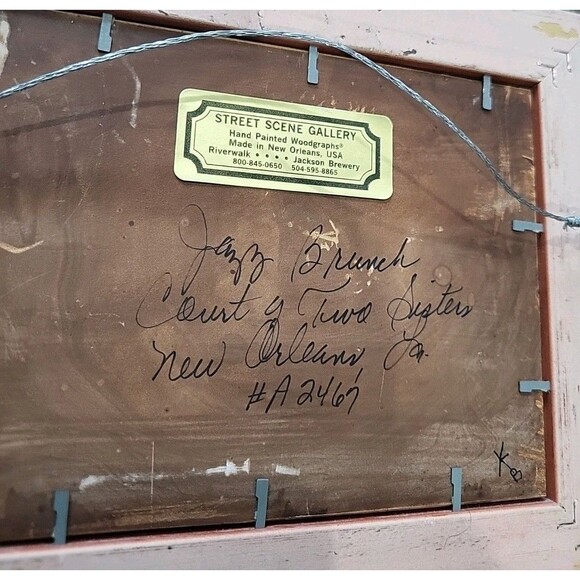 STREET SCENE GALLERY
Hand Painted Woodgraphs®
Made in New Orleans, USA
Riverwalk • • • • Jackson Brewery
800-845-0650 504-595-8865
Jazz Brunch
Court of Two Sisters
New Orleans, La.
#A2467